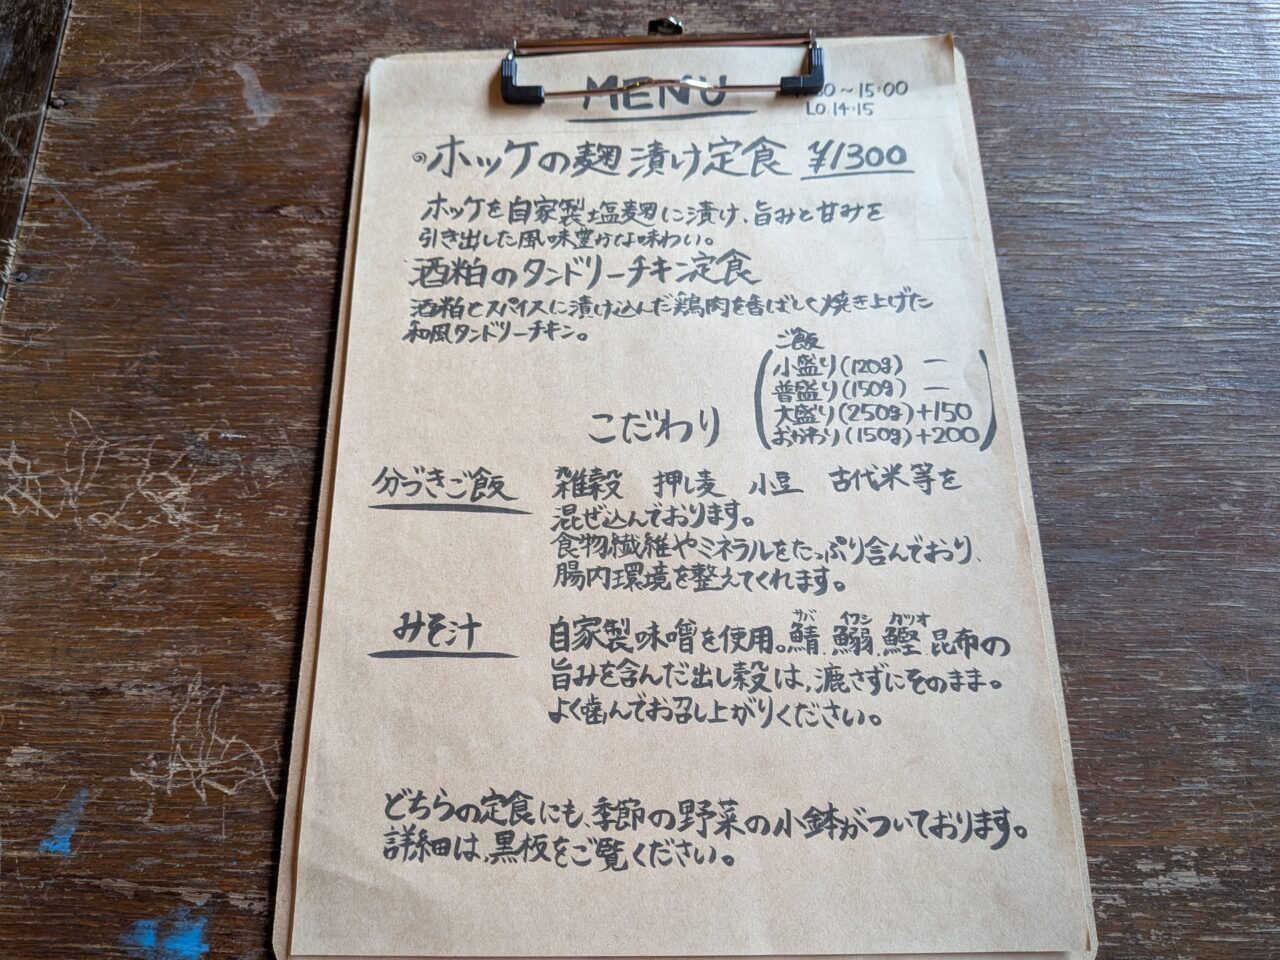 MENU
0～15:00
LO.14:15
ホッケの麹漬け定食 ¥1300
ホッケを自家製塩麹に漬け、旨みと甘みを
引き出した風味豊かな味わい。
酒粕のタンドリーチキン定食
酒粕とスパイスに漬け込んだ鶏肉を香ばしく焼き上げた
和風タンドリーチキン。
ご飯
小盛り(120g) ー
普盛り(150g) ー
大盛り(250g)+150
おかわり(150g)+200
こだわり
分づきご飯
雑穀 押し麦 小豆 古代米等を
混ぜ込んでおります。
食物繊維やミネラルをたっぷり含んでおり、
腸内環境を整えてくれます。
みそ汁
サバ イワシ カツオ
自家製味噌を使用。鯖、鰯、鰹、昆布の
旨みを含んだ出し殻は、漉さずにそのまま。
よく噛んでお召し上がりください。
どちらの定食にも、季節の野菜の小鉢がついております。
詳細は、黒板をご覧ください。